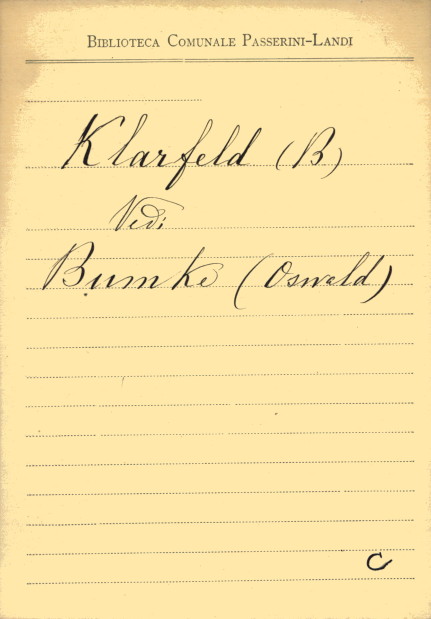 Biblioteca Comunale Passerini-Landi
Klarfeld (B)
Vedi
Bumke (Oswald)
C